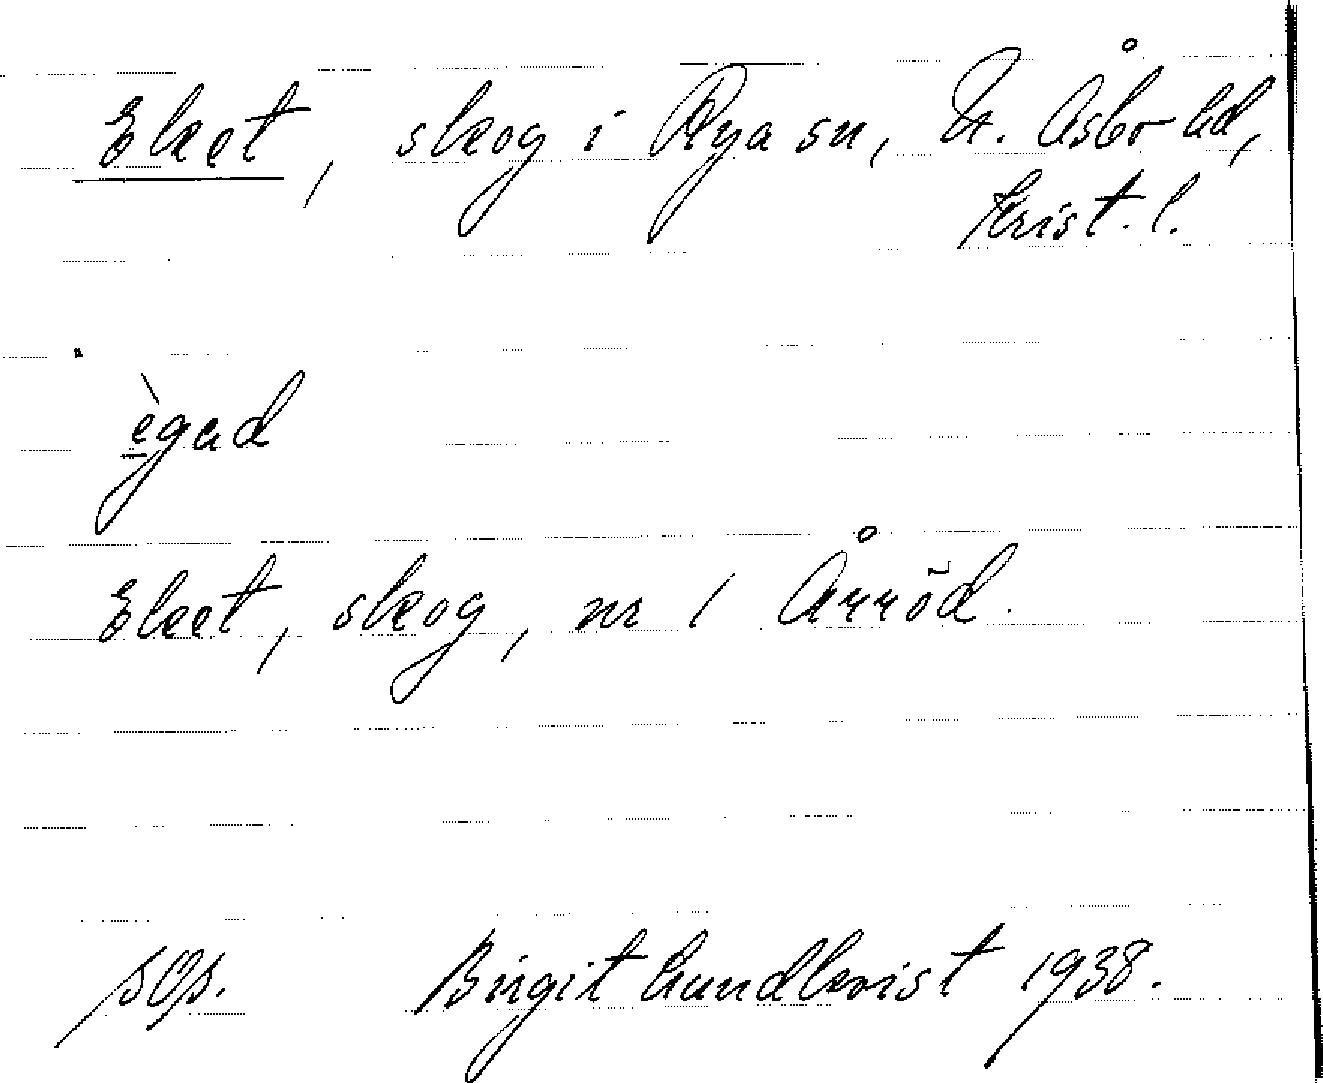 Eket, skog i Rya sn, N. Åsbo hd,
Krist. l.
ègad
Eket, skog, nr 1 Årröd.
Birgit Lundkvist 1938.